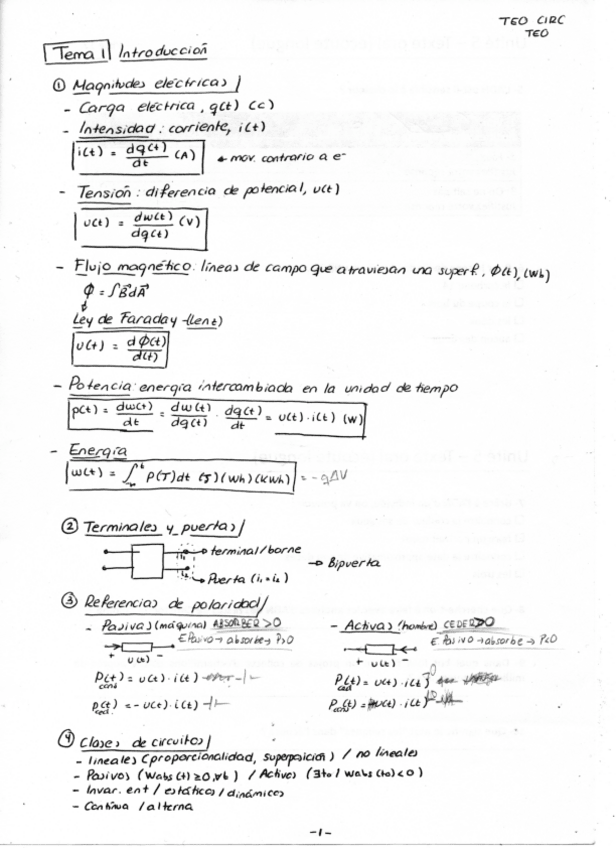 TEO CIRC
TEO
Tema 1 Introducción
① Magnitudes eléctricas
- Carga eléctrica, q(t) (C)
- Intensidad: corriente, i(t)
i(t) = dq(t)/dt (A) ← mov. contrario a e⁻
- Tensión: diferencia de potencial, u(t)
u(t) = dw(t)/dq(t) (V)
- Flujo magnético: líneas de campo que atraviesan una superf., Φ(t), (Wb)
Φ = ∫B⃗dA⃗
Ley de Faraday-(Lenz)
u(t) = dΦ(t)/d(t)
- Potencia: energía intercambiada en la unidad de tiempo
p(t) = dw(t)/dt = dw(t)/dq(t) · dq(t)/dt = u(t)·i(t) (W)
- Energía
w(t) = ∫ P(T)dt (J) (Wh) (KWh) = -qΔV
② Terminales y puertas
terminal/borne
Puerta (i₁=i₂) → Bipuerta
③ Referencias de polaridad
- Pasivas (máquina) ABSORBER>0 - Activas (hombre) CEDER>0
E Pasivo → absorbe → P>0 E Pasivo → absorbe → P<0
u(t) - + u(t) -
P(t) cons = u(t)·i(t) P(t) ced = u(t)·i(t)
p(t) ced = -u(t)·i(t) P(t) cons = u(t)·i(t)
④ Clases de circuitos
- lineales (proporcionalidad, superposición) / no lineales
- Pasivos (Wabs(t)≥0,∀t) / Activos (∃to / Wabs(to)<0)
- Invar. en t / estáticos / dinámicos
- Continua / alterna
-1-